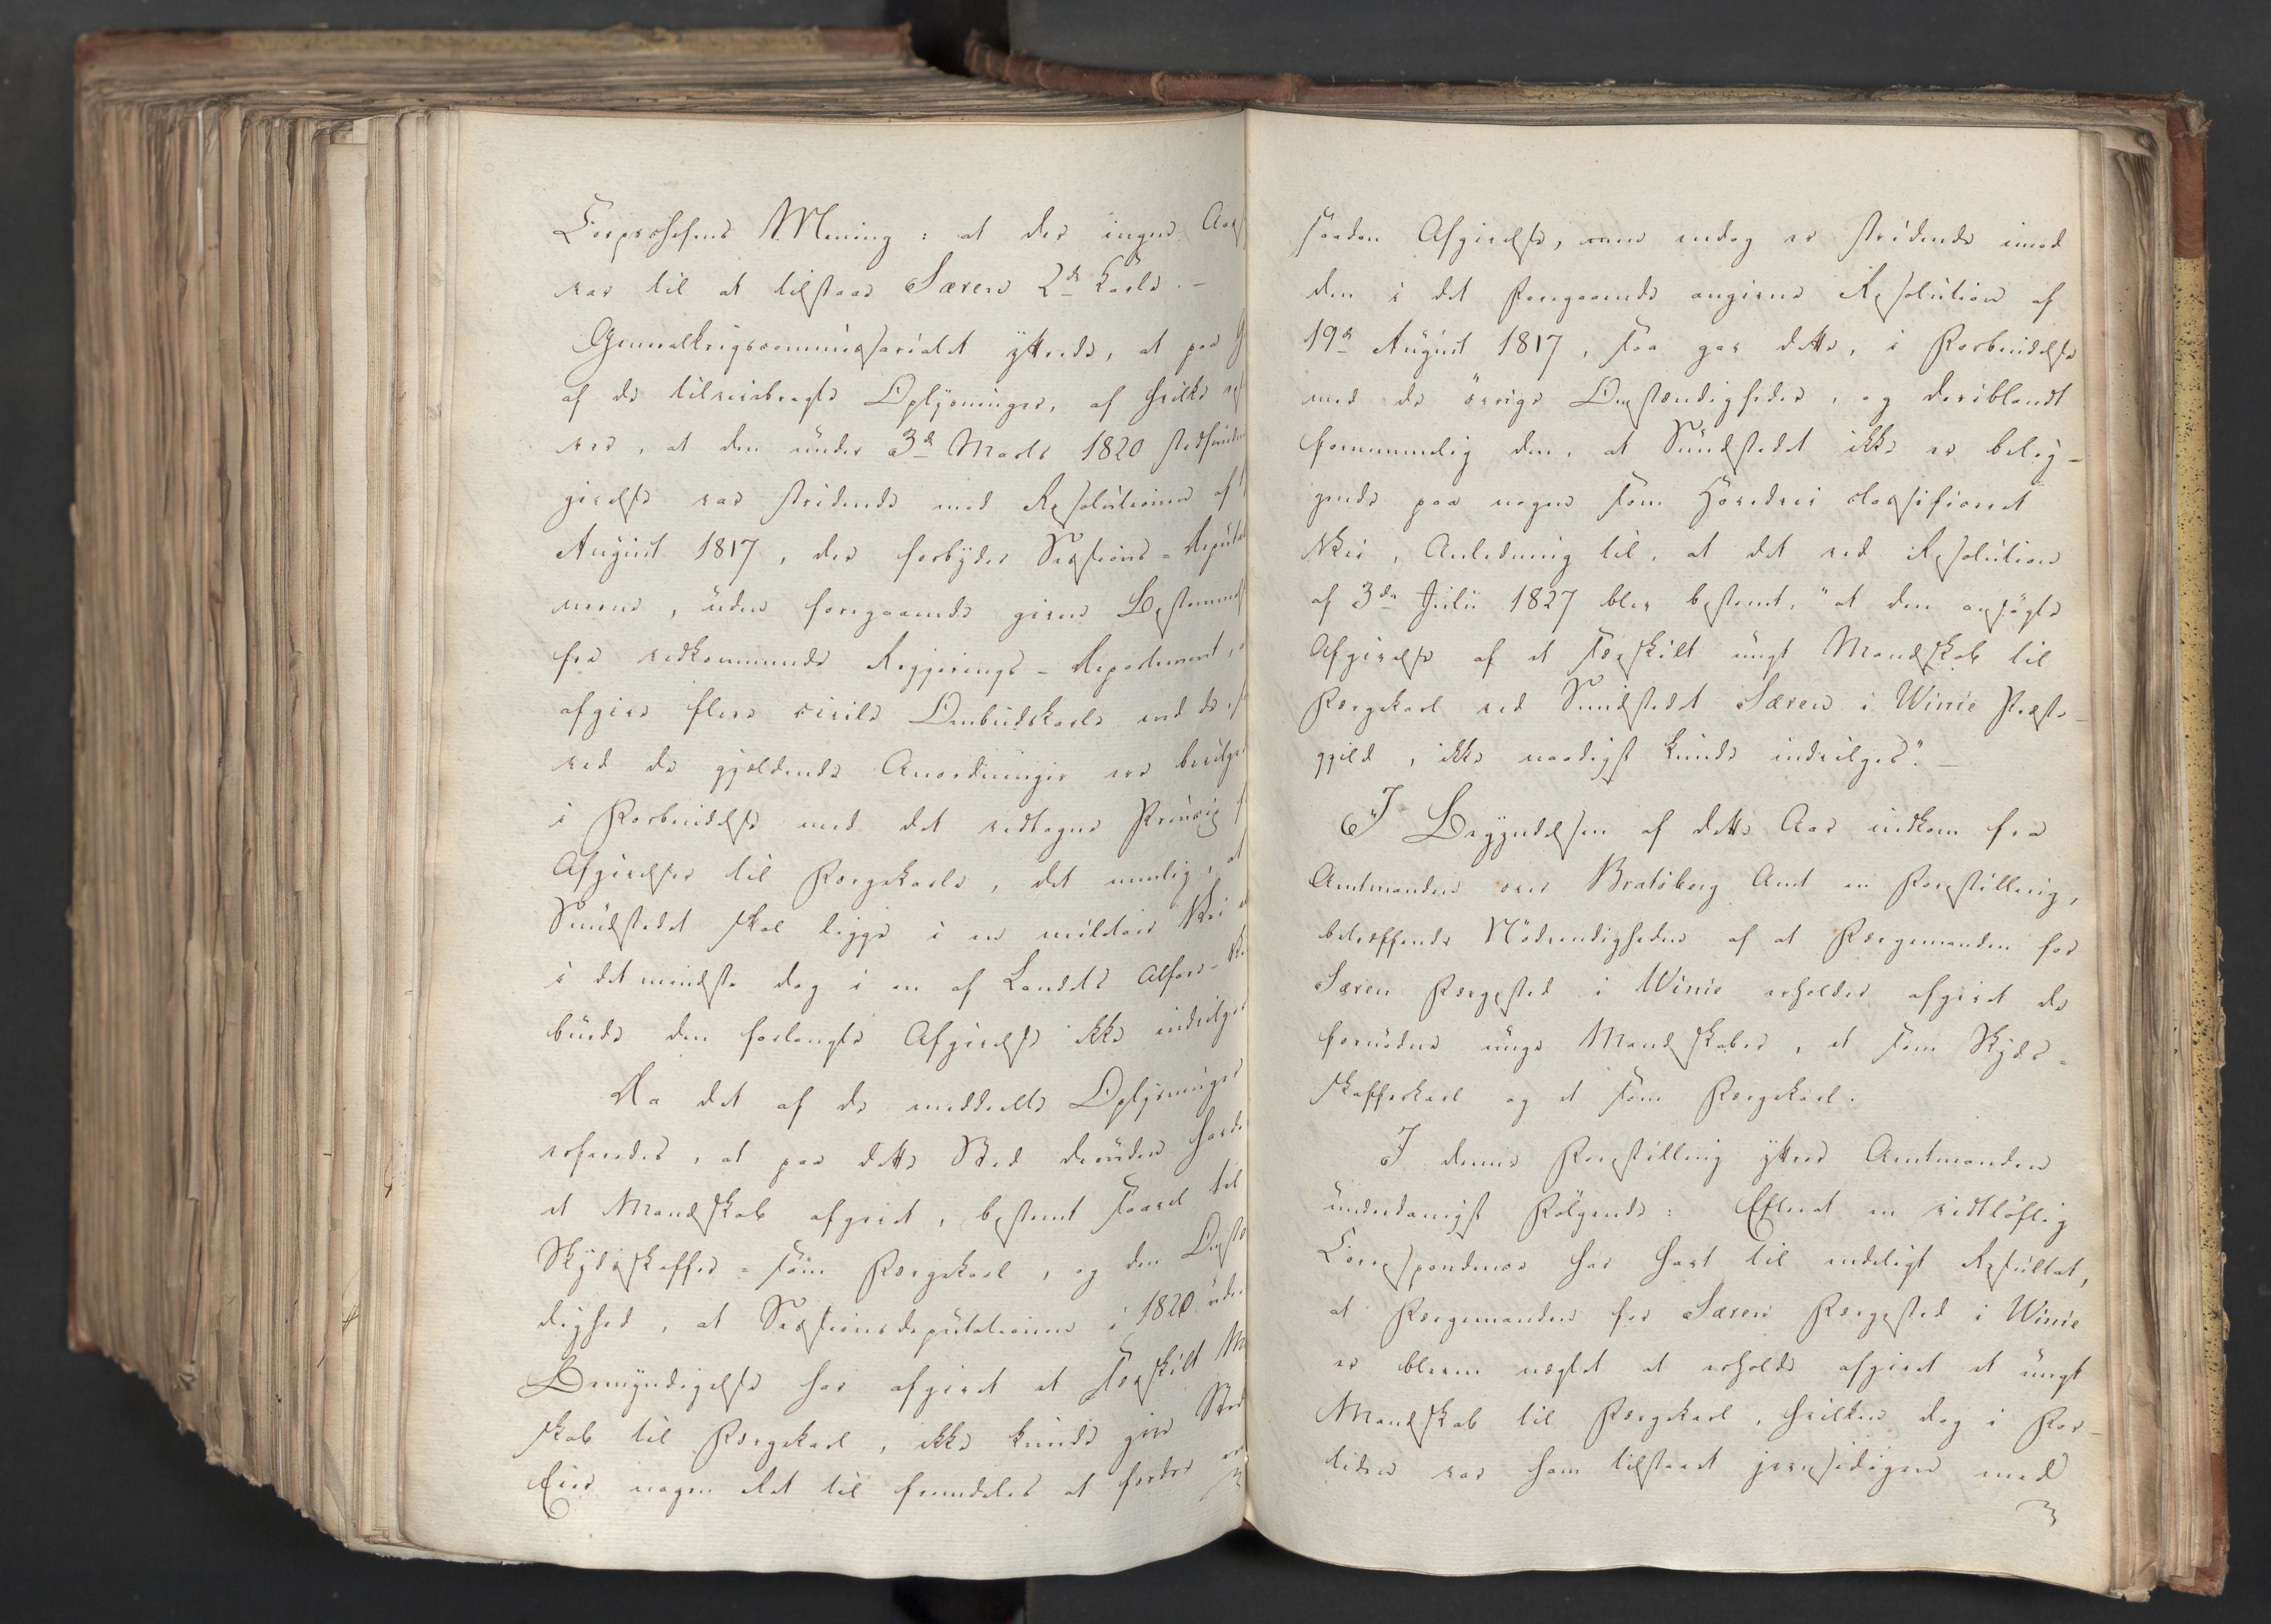 Corpschefens Mening: at der ingen Aars
var til at tilstaae Særen 2de Karle. –
Generalkrigscommissariatet yttrede, at paa G
af de tilveiebragte Oplysninger, af hvilke
ved, at den under 3de Marts 1820 stedfundne
givelse var stridende mod Resolutionen af
August 1817, der forbyder Sessions-Deputat
nerne, uden foregaaende given Bestemmels
fra vedkommende Regjerings-Departement,
afgive flere civile Ombudskarle end de,
ved de gjeldende Anordninger ere bevilge
i Forbindelse med det vedtagne Princip f
Afgivelser til Færgekarle, det nemlig, at
Sundstedet skal ligge i en militair Vei
i det mindste dog i en af Landets Alfare-Ve
burde den forlangte Afgivelse ikke indvilges
Da det af de meddeelte Oplysninger
erfaredes, at paa dette Sted desuden havde
et Mandskab afgivet, bestemt saavel til
Skydsskaffer- som Færgekarl, og den Omstæ
dighed, at Sessionsdeputationen i 1820 uden
Bemyndigelse har afgivet et særskilt M
skab til Færgekarl, ikke kunde give Sted
Eier nogen Ret til fremdeles at fordre
saadan Afgivelse, som endog er stridende imod
den i det Foregaaende angivne Resolution af
19de August 1817, saa gav dette, i Forbindelse
med de övrige Omstændigheder, og deriblandt
fornemmelig den, at Sundstedet ikke er belig-
gende paa nogen som Hovedvei classificeret
Vei, Anledning til, at det ved Resolution
af 3die Julii 1827 blev bestemt, "at den ansögte
Afgivelse af et særskilt ungt Mandskab til
Færgekarl ved Sundstedet Særen i Winie Præste-
gjeld, ikke naadigst kunde indvilges". –
I Begyndelsen af dette Aar indkom fra
Amtmanden over Bratsberg Amt en Forestilling,
betræffende Nödvendigheden af at Færgemanden for
Særen Færgested i Winie erholder afgivet de
fornödne unge Mandskaber, et som Skyds-
skafferkarl og et som Færgekarl.
I denne Forestilling yttrer Amtmanden
underdanigst Fölgende: Efterat en vidtlöftig
Correspondence har havt til endeligt Resultat,
at Færgemanden for Særen Færgested i Winie
er bleven nægtet at erholde afgivet et ungt
Mandskab til Færgekarl, hvilken dog i For-
tiden var ham tilstaaet jevnsidigen med